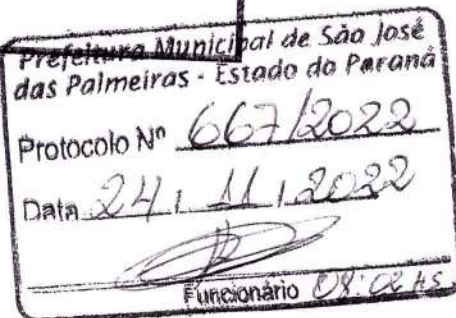 Prefeitura Municipal de São José
das Palmeiras - Estado do Paraná
Protocolo Nº 667/2022
Data 24 / 11 / 2022
Funcionário 08:02 HS